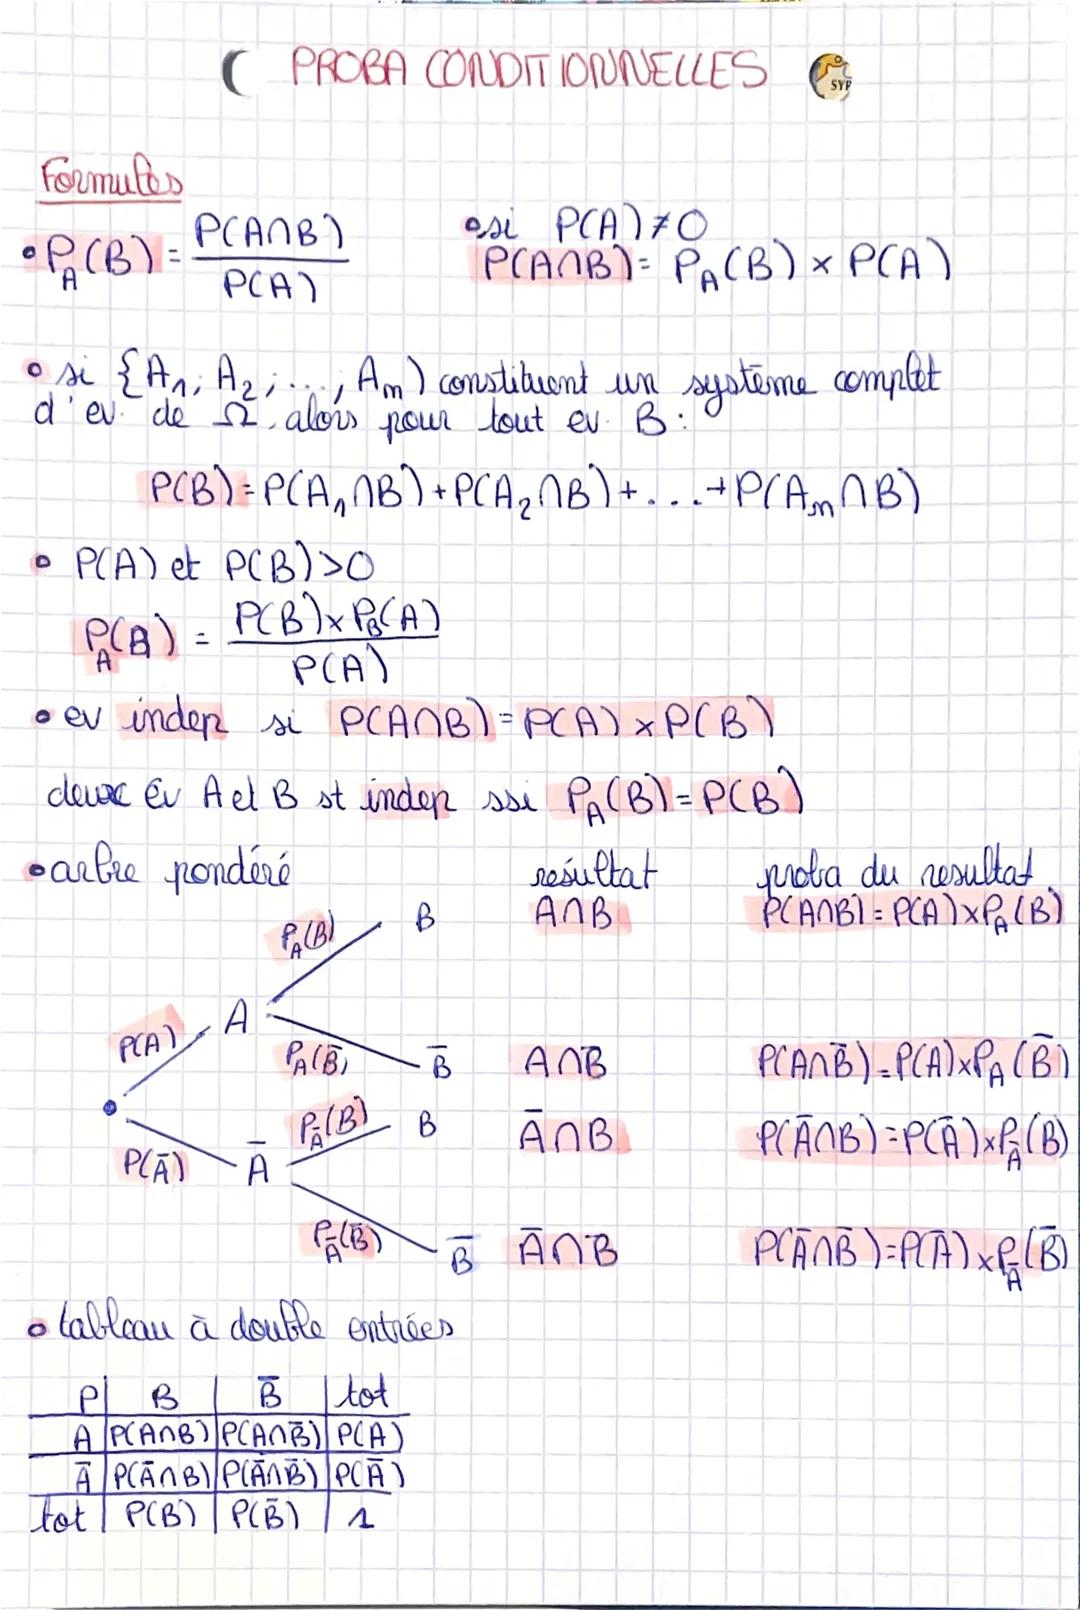 PROBA CONDITIONNELLES
SYP
Formules
• P_A(B) = P(A∩B) / P(A)
• si P(A) ≠ 0
P(A∩B) = P_A(B) × P(A)
• si {A₁; A₂; ...; Aₙ) constituent un système complet
d'ev. de Ω, alors pour tout ev. B :
P(B) = P(A₁∩B) + P(A₂∩B) + ... + P(Aₙ∩B)
• P(A) et P(B) > 0
P_A(B) = P(B) × P_B(A) / P(A)
• ev indep si P(A∩B) = P(A) × P(B)
deux év A et B st indep ssi P_A(B) = P(B)
• arbre pondéré résultat proba du resultat
P_A(B) B A∩B P(A∩B) = P(A) × P_A(B)
P(A) A
P_A(B̄) B̄ A∩B̄ P(A∩B̄) = P(A) × P_A(B̄)
P_Ā(B) B Ā∩B P(Ā∩B) = P(Ā) × P_Ā(B)
P(Ā) Ā
P_Ā(B̄) B̄ Ā∩B̄ P(Ā∩B̄) = P(Ā) × P_Ā(B̄)
• tableau à double entrées
P B B̄ tot
A P(A∩B) P(A∩B̄) P(A)
Ā P(Ā∩B) P(Ā∩B̄) P(Ā)
tot P(B) P(B̄) 1